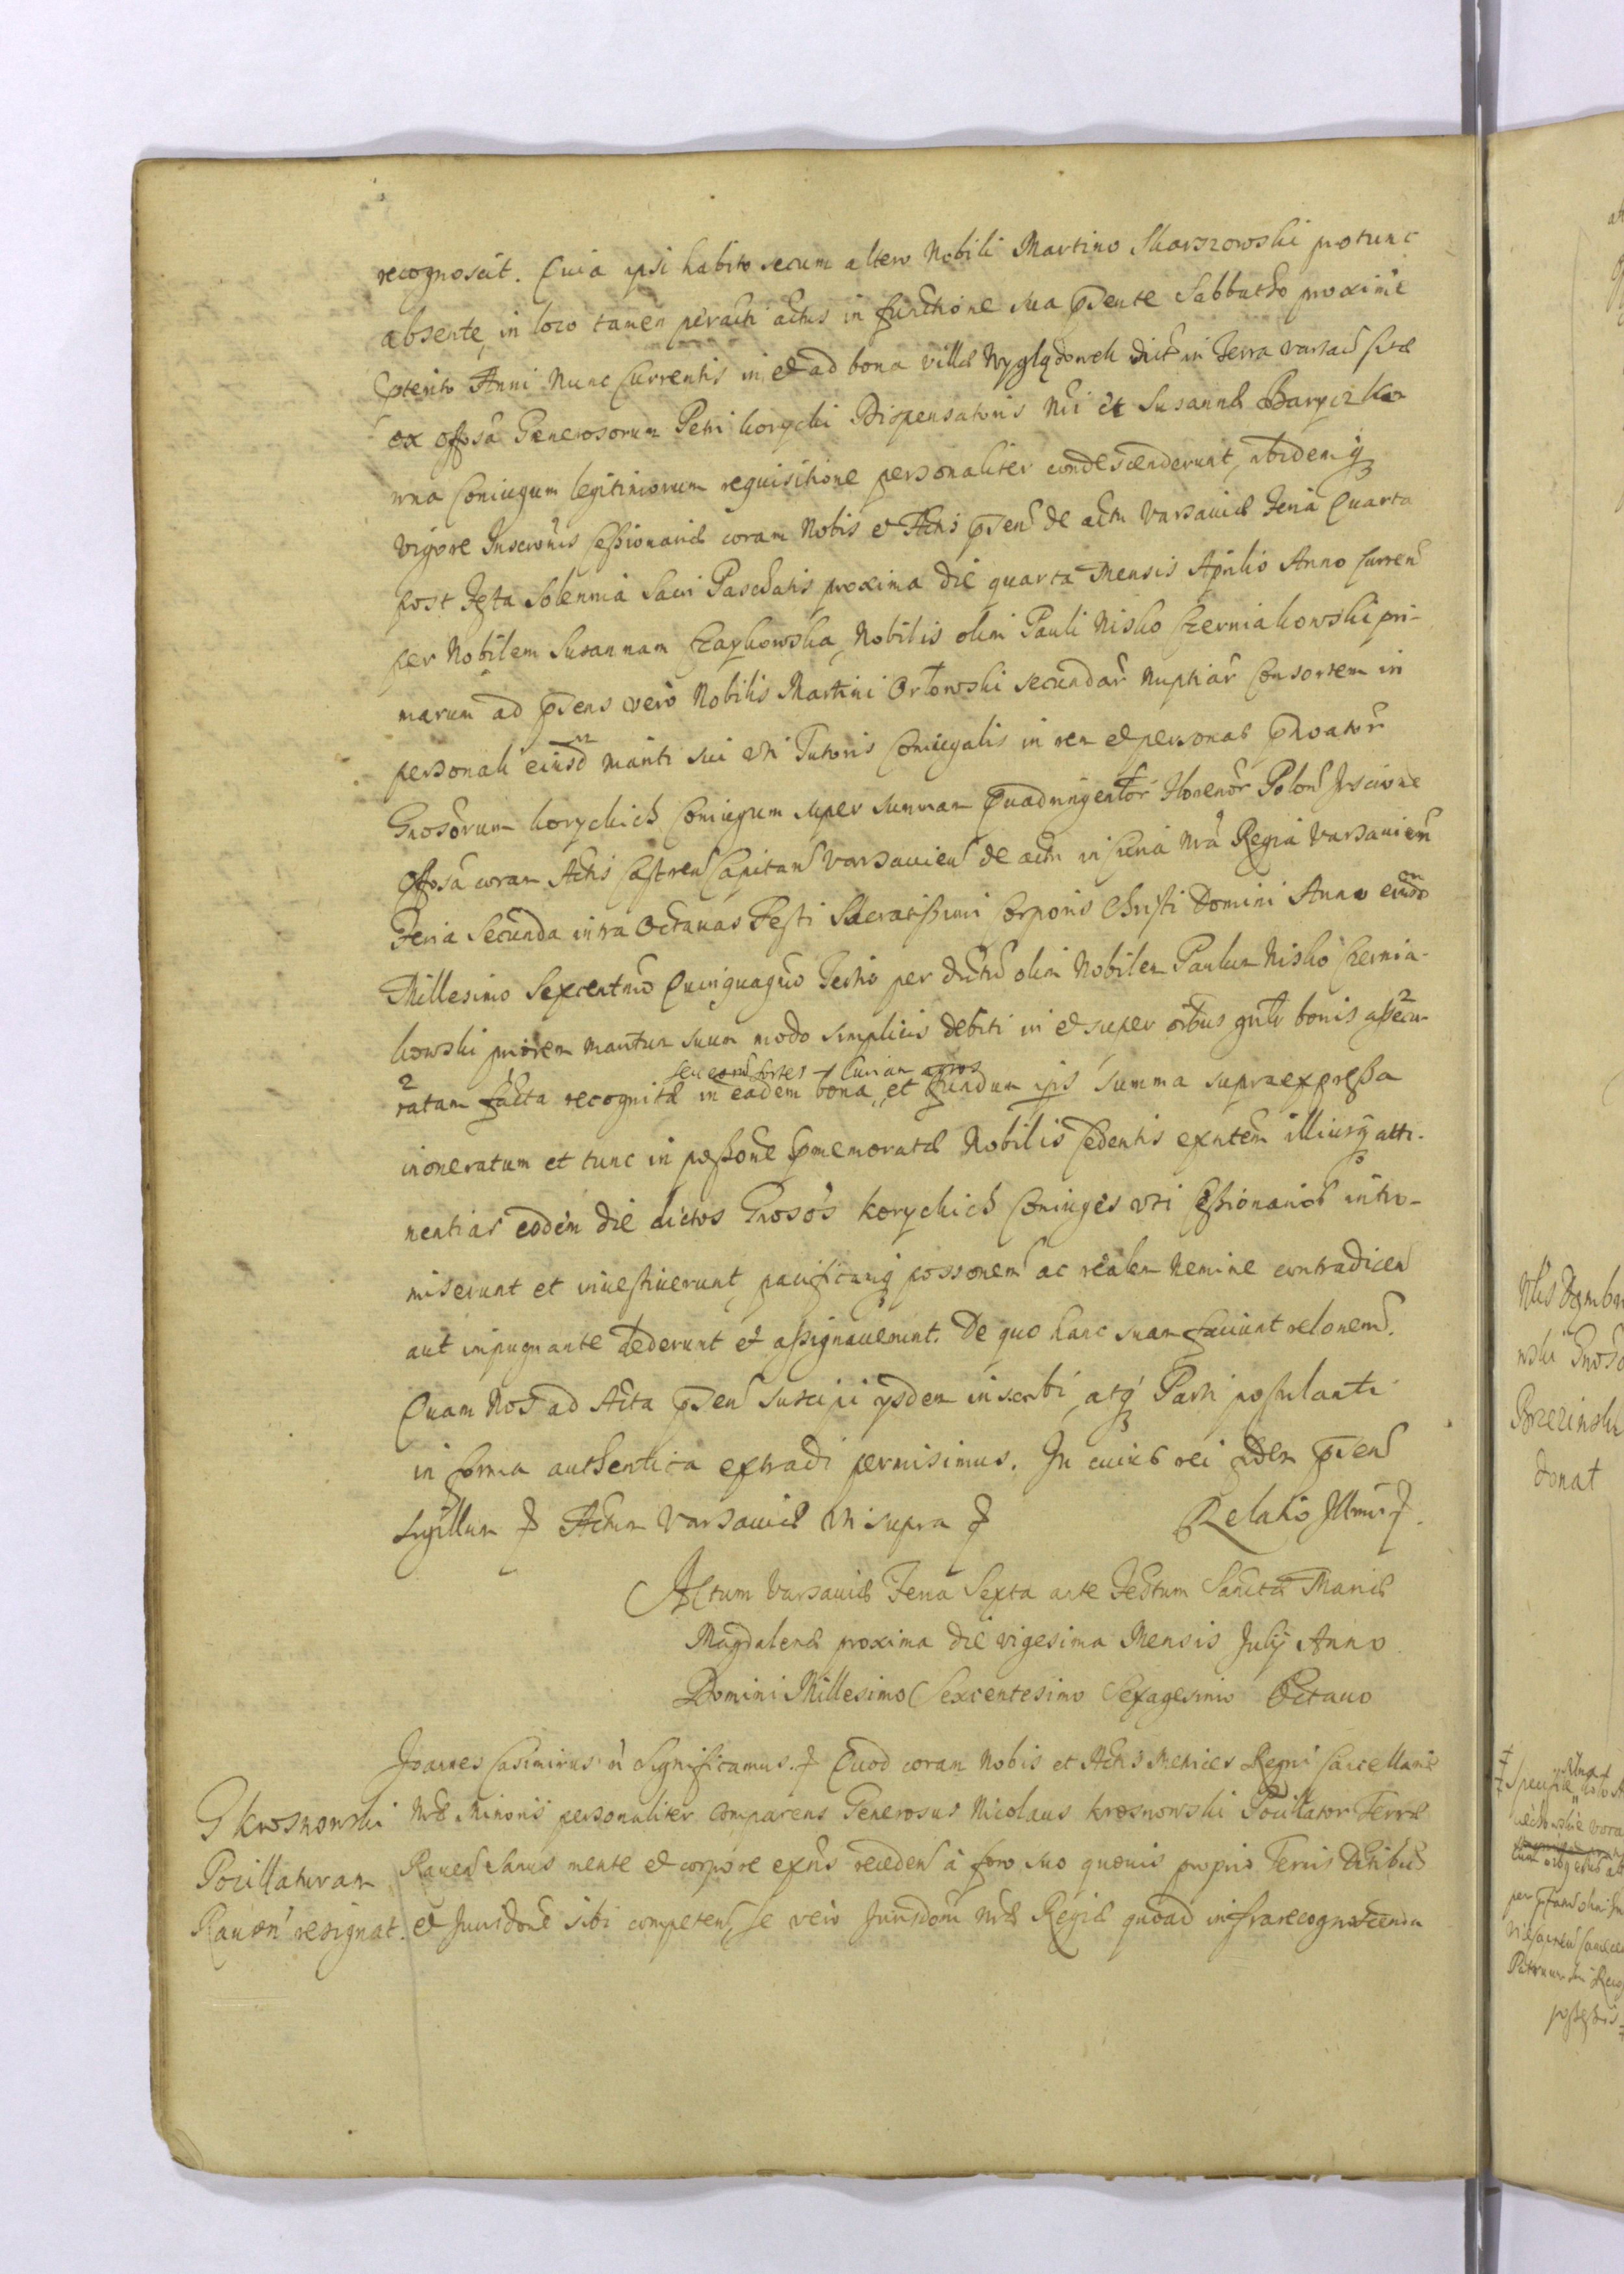 recognoscit. Quia ipsi habito secum altero Nobili Martino Skarszowski protunc
absente, in loco tamen peracti actus in functione sua pnte Sabbatho proxime
pterito Anni Nunc Currentis in et ad bona villæ Wyglądowek dict in Terra Varsau sitæ
ex offosa Generosorum Petri Korycki Dispensatoris Nri et Susannæ Barycz Ko-
wna Coniugum legitimorum requisitione personaliter condescenderunt, ibidemq
vigore Inscronis Cessionariæ coram Nobis et Actis psen de actu Varsauiæ Feria Quarta
post Festa Solennia Sacri Paschatis proxima die quarta Mensis Aprilis Anno Curren
per Nobilem Susannam Czaykowska, Nobilis olim Pauli Nisko Czerniakowski pri-
marum ad psens vero Nobilis Martini Orlowski secundar Nuptiar Consortem in
personali eiusdm mariti sui uti Tutoris Coniugalis in rem et personas
Gnosorum Koryckich Coniugum super summam Quadringentor Florenor Polon Inscrione
offosa coram Actis Castren Capitan Varsauien de actu in Curia nra Regia Varsauien
Feria Secunda infra Octauas Festi Sacratissimi Corporis Christi Domini Anno eiusdm
Millesimo Sexcentmo Quinquagmo Tertio per dictu olim Nobilem Paulum Nisko Czernia-
kowski priorem maritum suum modo simplicis debiti in et super oibus gntr bonis assecu-
seu eoru sortes Curiam agros
ratam facta recognitæ in eadem bona, et fundum ipis summa supraexpressa
inoneratum et tunc in possone pmemoratæ Nobilis Cedentis exntem illiusq atti-
nentias eodem die dictos Gnosos Koryckich Coniuges uti Cessionarios intro-
miserunt et inuestiuerunt, pacificamq possonem ac realem Nemine contradicen
aut impugnante dederunt et assignauerunt. De quo hanc suam faciunt relonem.
Quam Nos ad Acta psen suscipi ysdem inscribi, atq Parti postulanti
in forma authentica extradi permisimus. In cuius rei fidem psen
sigillum Actum Varsauiæ ut supra Relatio Illmi
Actum Varsauiæ Feria Sexta ante Festum Sanctæ Mariæ
Magdalenæ proxima die vigesima Mensis Julij Anno
Domini Millesimo Sexcentesimo Sexagesimo Octauo
Joannes Casimirus Significamus. Quod coram Nobis et Actis Metrices Regni Cancellariæ
G Krosnowski
Pocillaturam
Rauen resignat.
nræ Minoris personaliter Comparens Generosus Nicolaus Krosnowski Pocillator Terræ
Rauen sanus mente et corpore exns receden à foro suo quouis proprio Terris Distribus
et Jurisdone sibi competen, se vero Jurisdoni nræ Regiæ quoad infrarecognoscenda
Nlis Dąmbro
wski Gnoso
Brzezinski
donat